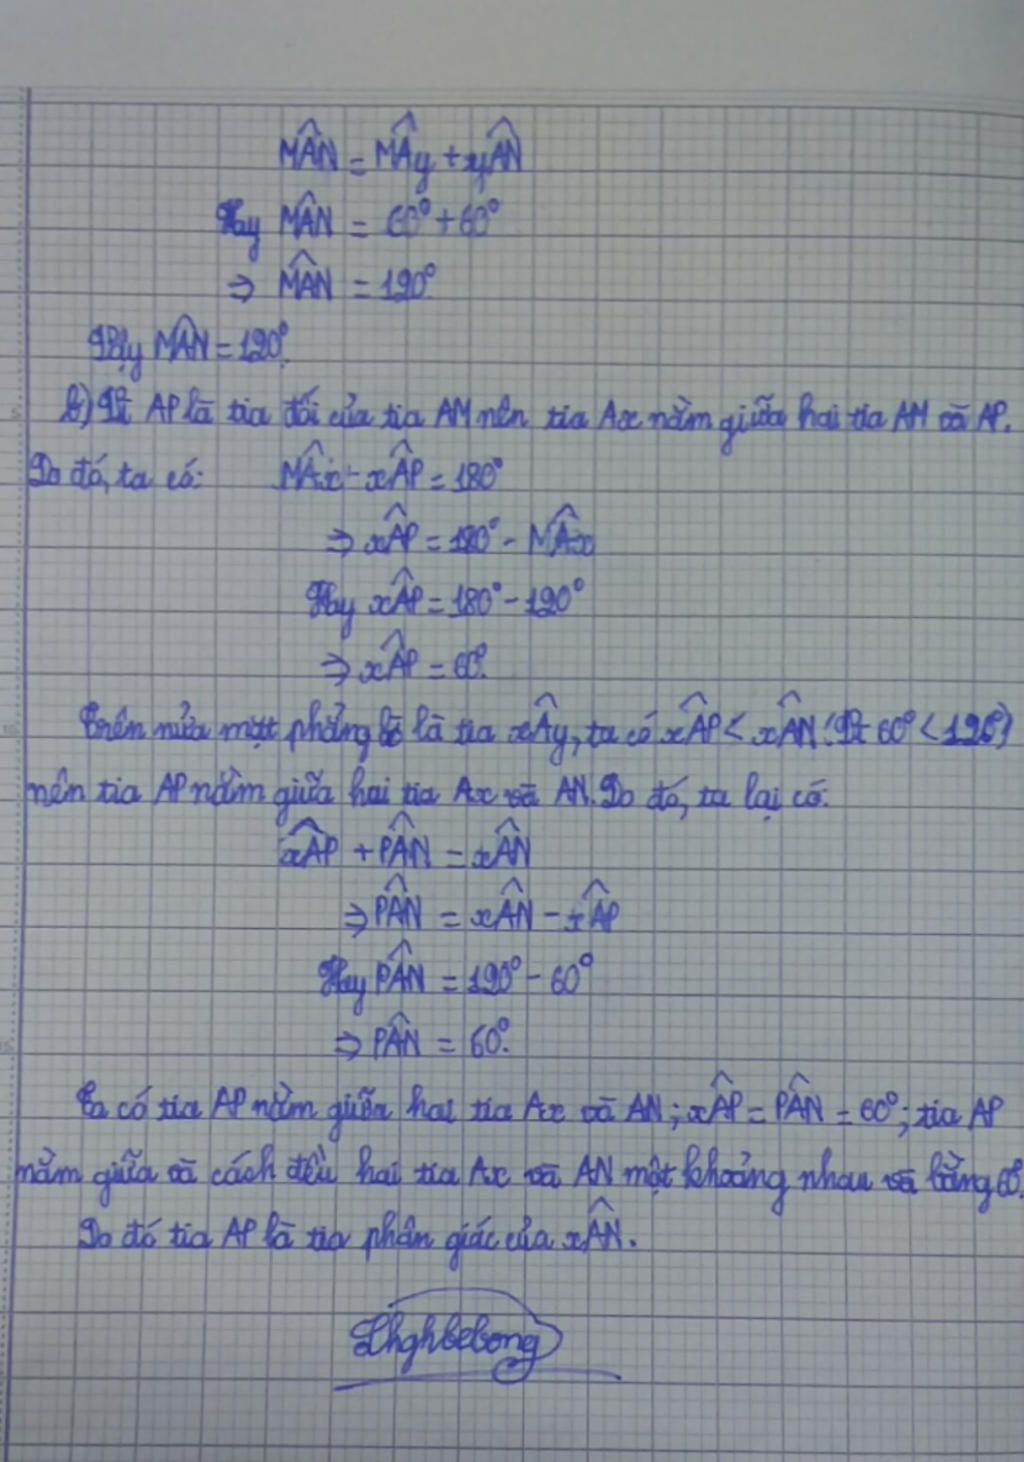 MÂN = MÂy + yÂN
Hay MÂN = 60° + 60°
⇒ MÂN = 120°
Vậy MÂN = 120°.
b) Vì AP là tia đối của tia AM nên tia Ax nằm giữa hai tia AM và AP.
Do đó, ta có: MÂx + xÂP = 180°
⇒ xÂP = 180° - MÂx
Hay xÂP = 180° - 120°
⇒ xÂP = 60°.
Trên nửa mặt phẳng bờ là tia xÂy, ta có xÂP < xÂN (Vì 60° < 120°)
nên tia AP nằm giữa hai tia Ax và AN. Do đó, ta lại có:
xÂP + PÂN = xÂN
⇒ PÂN = xÂN - xÂP
Hay PÂN = 120° - 60°
⇒ PÂN = 60°.
Ta có tia AP nằm giữa hai tia Ax và AN; xÂP = PÂN = 60°; tia AP
nằm giữa và cách đều hai tia Ax và AN một khoảng nhau và bằng 60°.
Do đó tia AP là tia phân giác của xÂN.